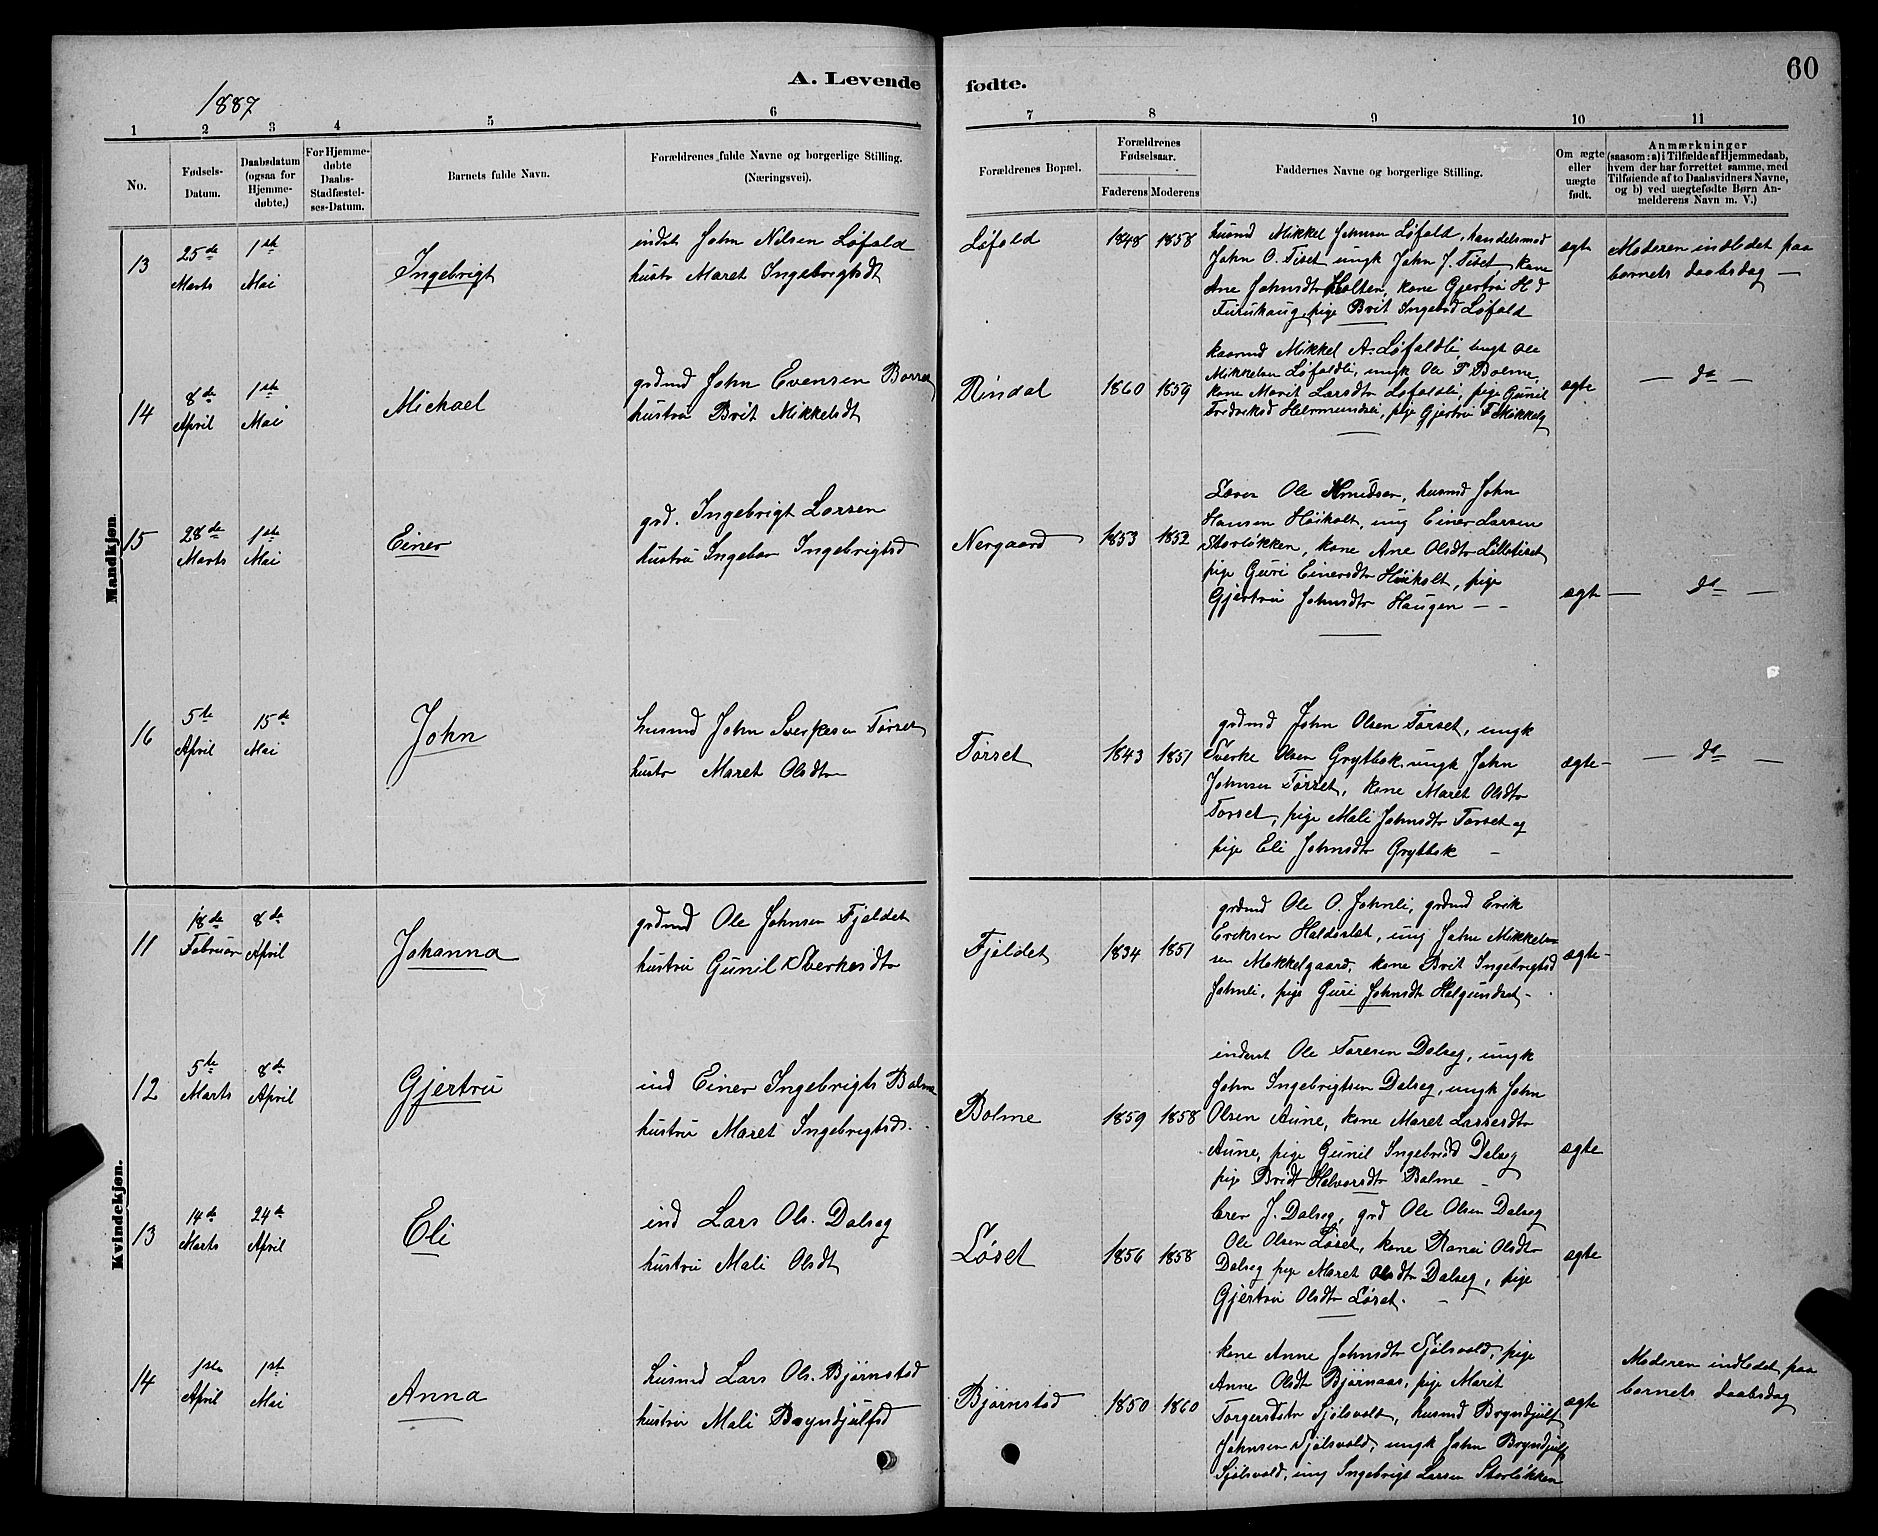 60
A. Levende fødte.
1887
1 2 3 4 5 6 7 8 9 10 11
No.
Fødsels-
Datum.
Daabsdatum
(ogsaa for
Hjemme-
døbte,)
For Hjemme-
døbte
Daabs-
Stadfæstel-
ses-Datum.
Barnets fulde Navn.
Forældrenes fulde Navne og borgerlige Stilling.
(Næringsvei).
Forældrenes Bopæl.
Forældrenes
Fødselsaar.
Faderens Moderens
Faddernes Navne og borgerlige Stilling.
Om ægte
eller
uægte
født.
Anmærkninger
(saasom: a) i Tilfælde af Hjemmedaab,
hvem der har forrettet samme, med
Tilføiende af to Daabsvidners Navne,
og b) ved uægtefødte Børn An-
melderens Navn m. V.)
Mandkjøn.
13
25de
Marts
1ste
Mai
Ingebrigt
inderst John Nilsen Løfald
hustr Maret Ingebrigtsdt
Løfald
1848 1858
husmd Mikkel Johnsen Løfald, handelsmd
John O. Tiset ungk John J. Tiset, kone
Ane Johnsdtr Holten, kone Gjertru H d
Furuhaug, pige Brit Ingebrd Løfald
ægt
Moderen indledet paa
barnets daabsdag —
14
8de
April
1ste
Mai
Michael
grdmd John Evensen Borren
hustru Brit Mikkelsdt
Rindal
1860 1859
kaarmd Mikkel A. Løfaldli, ungk Ole
Mikkelsen Løfaldli, ungk Ole P Bolme,
kone Marit Larsdtr Løfaldli, pige Gunil
Fredriksd Halrmundsli, pige Gjertru F Mikkelg
ægte
— do —
15
28de
Marts
1ste
Mai
Einer
grd. Ingebrigt Larsen
hustru Ingebor Ingebrigtsd
Nergaard
1853 1852
Lærer Ole Knudsen, husmd John
Hansen Høiholt, ung Einer Larsen
Storløkken, kone Ane Olsdtr Lilletiset
pige Guri Einersdtr Høiholt, pige
Gjertru Johnsdtr Haugen — -
ægt
— do —
16
5te
April
15de
Mai
John
husmd John Sverkesen Tørset
hustr Maret Olsdtr
Tørset
1843 1851
grdmd John Olsen Tørset, ungk
Sverke Olsen Grytbak, ungk John
Johnsen Tørset, kone Maret Olsdtr
Tørset, pige Mali Johnsdtr Tørset og
pige Eli Johnsdtr Grytbak —
ægte-
— do —
Kvindekjøn.
11
18de
Februar
8de
April
Johanna
grdmd Ole Johnsen Fjeldet
hustru Gunil Sverkesdtr
Fjeldet
1834 1851
grdmd Ole O. Johnli, grdmd Erik
Eriksen Haldøslæt, ung John Mikkel-
sen Mikkelgaard, kone Brit Ingebrigtsd
Johnli, pige Guri Johnsdtr Halgundset -
ægte-
12
5te
Marts
8de
April
Gjertru
ind Einer Ingebrigts Bolme
hustru Maret Ingebrigtsd.
Bolme
1859 1858
inderst Ole Toresen Dalseg, ungk
John Ingebrigtsen Dalseg, ungk John
Olsen Aune, kone Maret Larsesdtr
Aune, pige Gunil Ingebretsd Dalseg
pige Bridt Halvorsdtr Bolme -
ægte
13
14de
Marts
24de
April
Eli
ind Lars Ols. Dalseg
hustru Mali Olsdt
Løset
1856 1858
Brev J. Dalseg, grd Ole Olsen Dalseg
Ole Olsen Løset, kone Ranei Olsdtr
Dalseg pige Maret Olsdtr Dalseg, pige
Gjertru Olsdtr Løset. -
ægte
14
1ste
April
1ste
Mai
Anna
husmd Lars Ols. Bjørnstad
hustru Mali Bryndjulfsd
Bjørnstad
1850 1860
kone Anne Johnsdtr Sjølsvold, pige
Anne Olsdt Bjørnaas, pige Marit
Torgersdtr Sjølsvold, husmd Bryndjulf
Johnsen Sjølsvold, ungk John Bryndjulfs
Sjølsvold, ung Ingebrigt Larsen Storløkken
ægte
Moderen indledet paa
barnets daabsdag